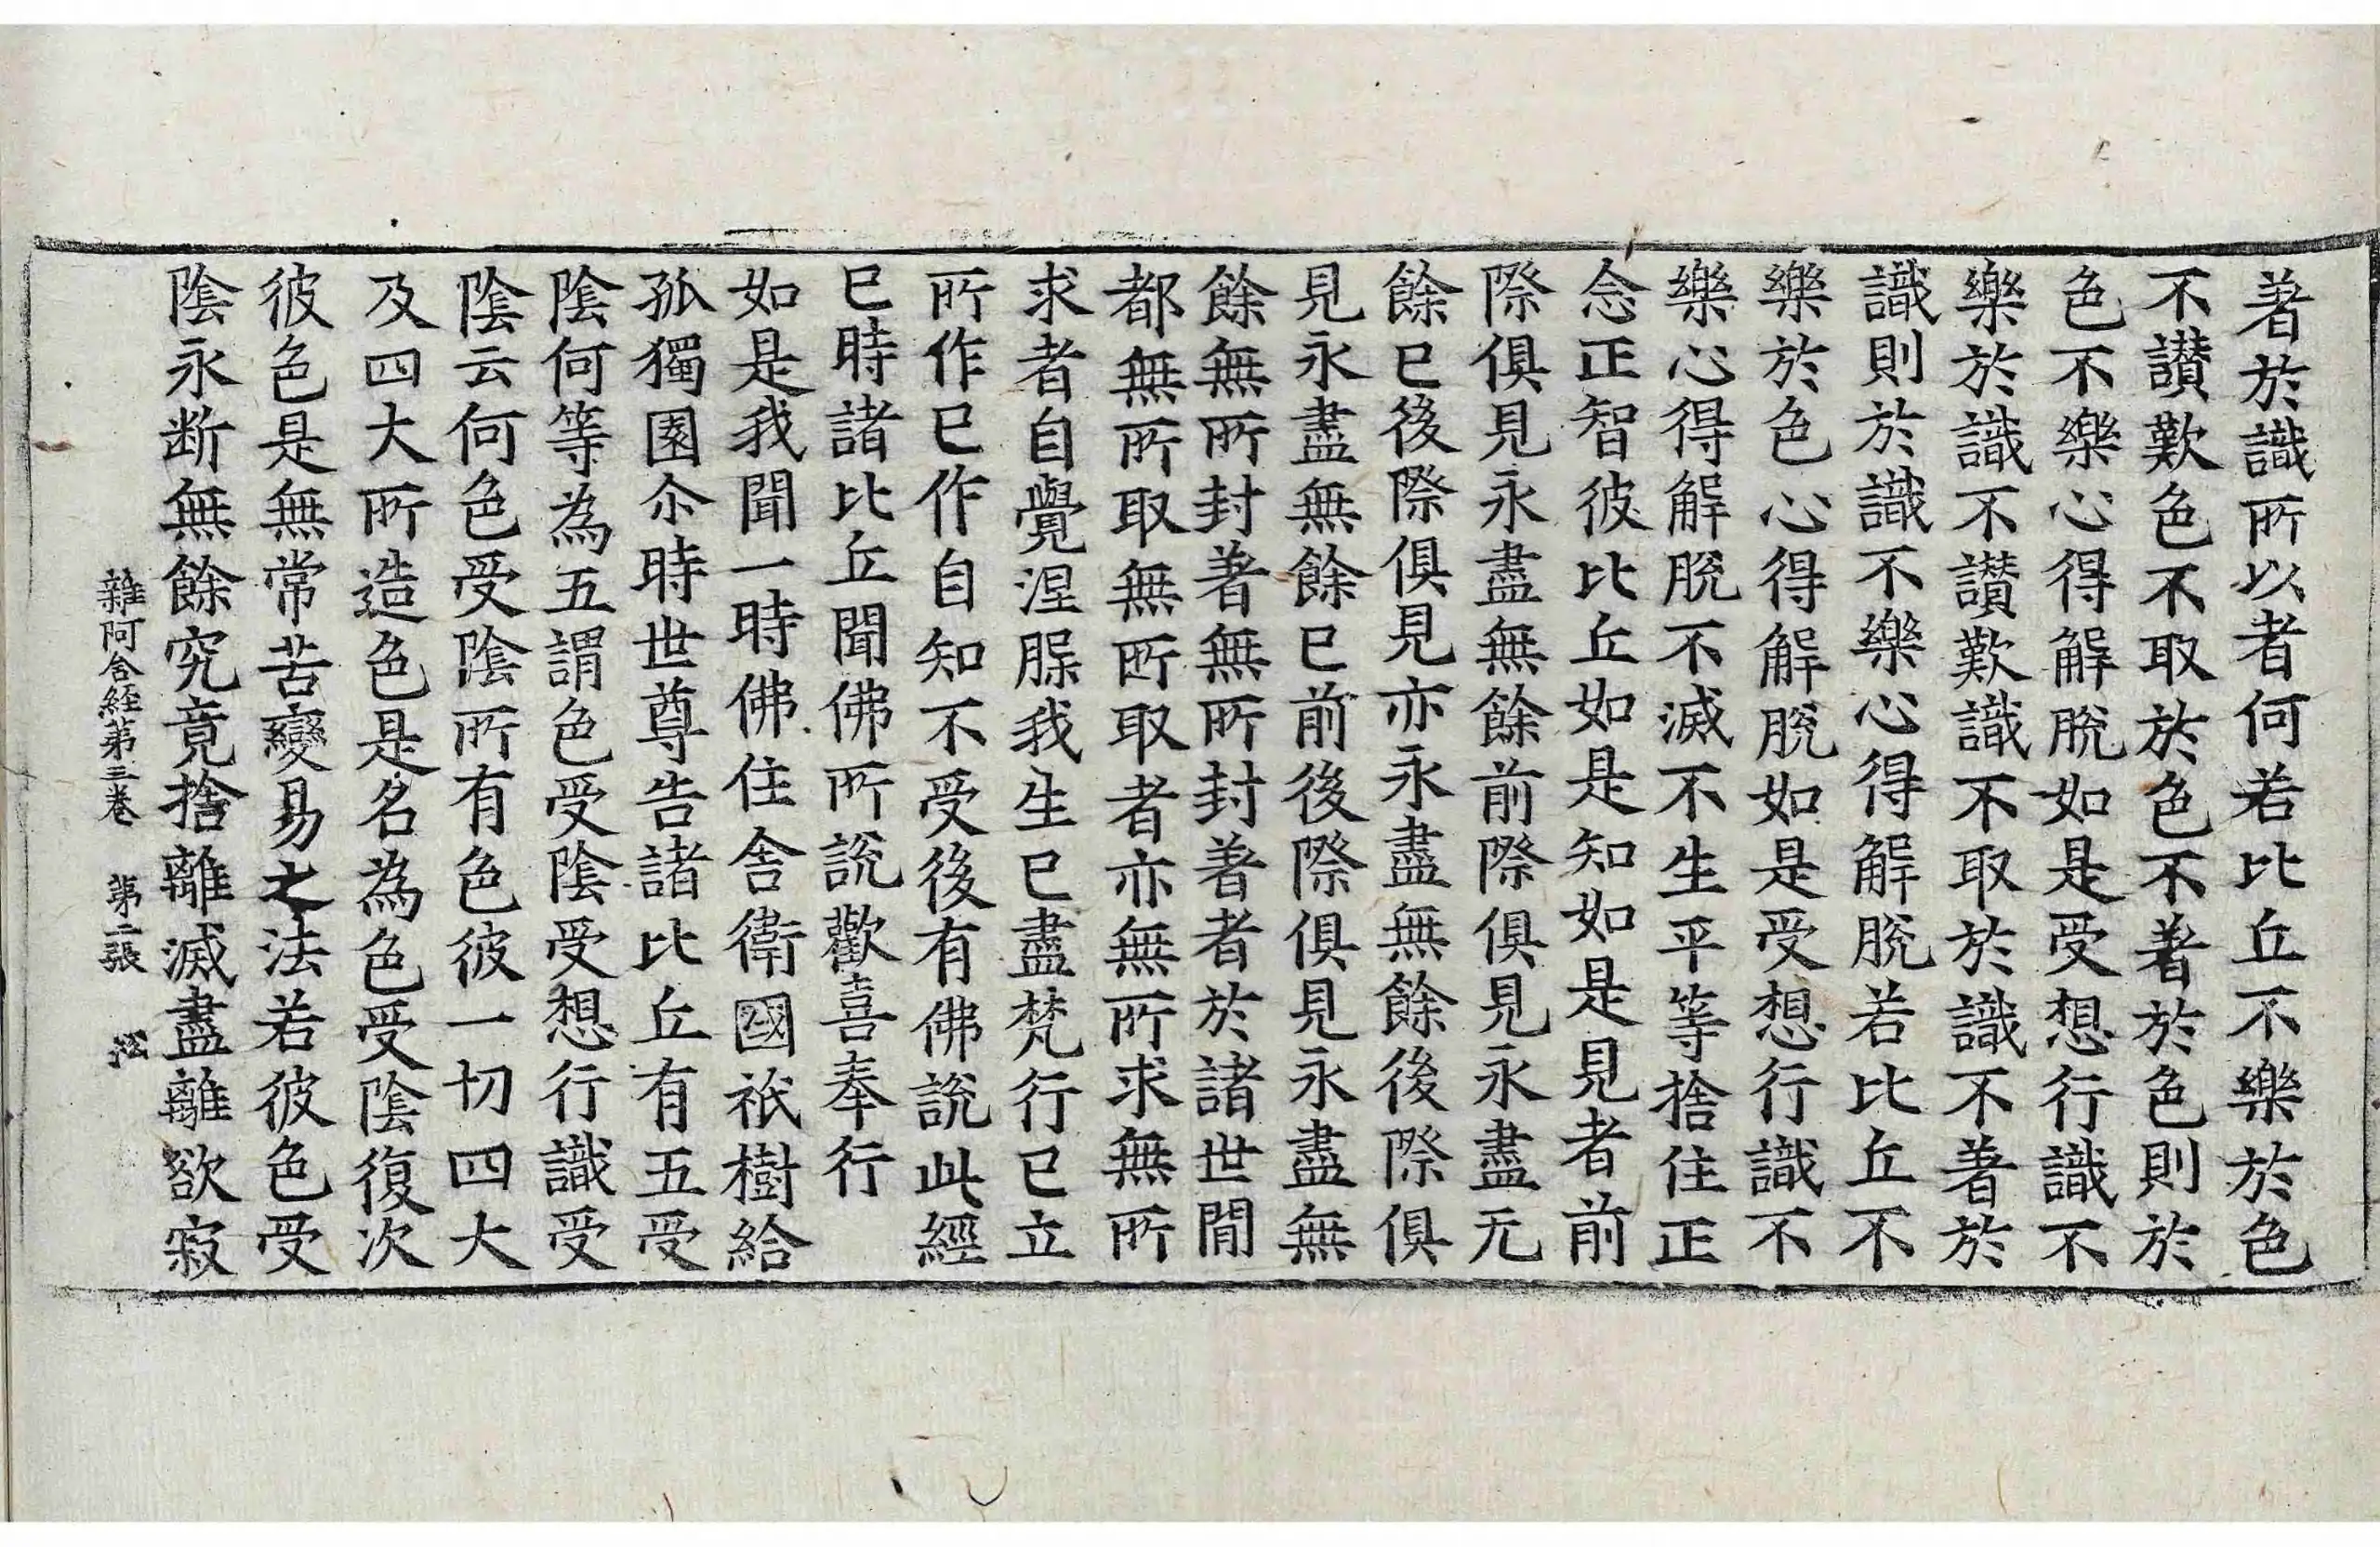 著於識所以者何若比丘不樂於色
不讃歎色不取於色不著於色則於
色不樂心得解脫如是受想行識不
樂於識不讃歎識不取於識不著於
識則於識不樂心得解脫若比丘不
樂於色心得解脫如是受想行識不
樂心得解脫不滅不生平等捨住正
念正智彼比丘如是知如是見者前
際俱見永盡無餘前際俱見永盡无
餘已後際俱見亦永盡無餘後際俱
見永盡無餘已前後際俱見永盡無
餘無所封著無所封著者於諸世間
都無所取無所取者亦無所求無所
求者自覺涅槃我生已盡梵行已立
所作已作自知不受後有佛說此經
已時諸比丘聞佛所說歡喜奉行
如是我聞一時佛住舍衛國祇樹給
孤獨園尒時世尊告諸比丘有五受
陰何等為五謂色受陰受想行識受
陰云何色受陰所有色彼一切四大
及四大所造色是名為色受陰復次
彼色是無常苦變易之法若彼色受
陰永断無餘究竟捨離滅盡離欲寂
雜阿含經第三卷 第二張